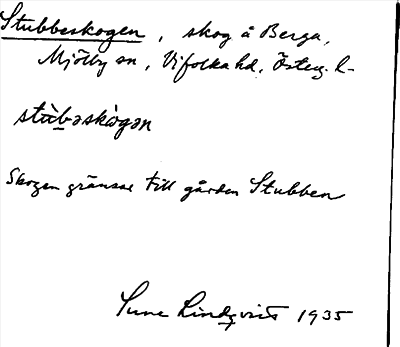 Stubbeskogen, skog å Berga,
Mjölby sn, Vifolka hd, Österg. l.
stùb̲əskògən
Skogen gränsar till gården Stubben
Sune Lindqvist 1935